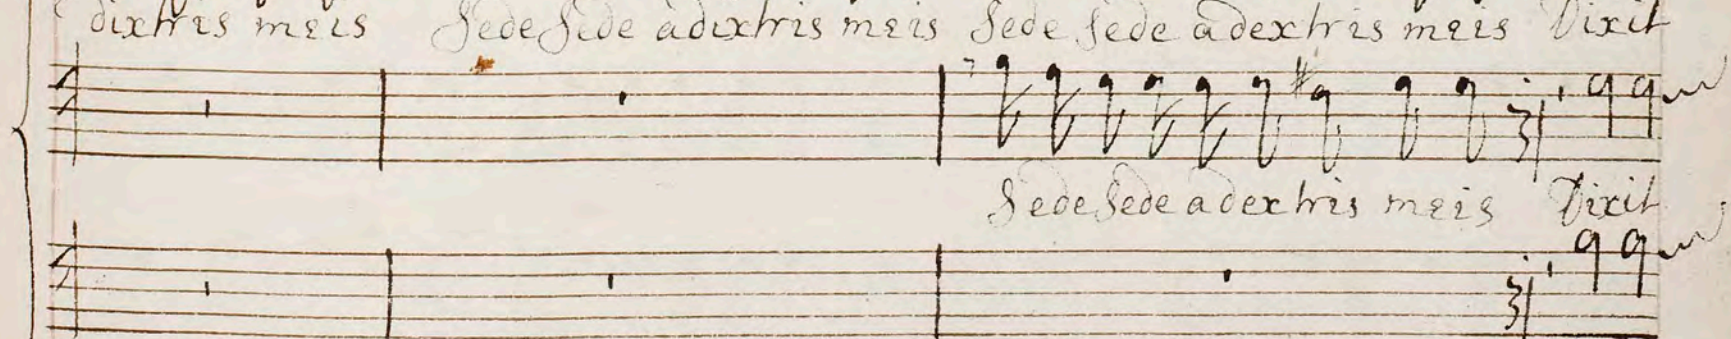 dixtris meis Sede Sede a dextris meis Sede Sede a dextris meis Dixit
Sede Sede a dextris meis Dixit